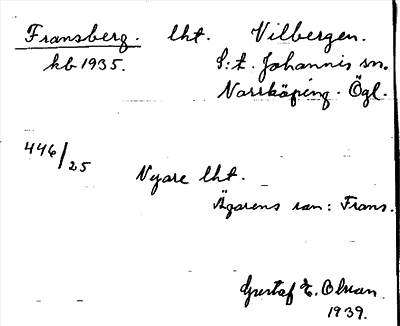 Fransberg. lht. Vilbergen.
kb 1935. S:t. Johannis sn.
Norrköping. Ögl.
446/25
Nyare lht.
Ägarens namn: Frans.
Gustaf E. Olsson
1939.